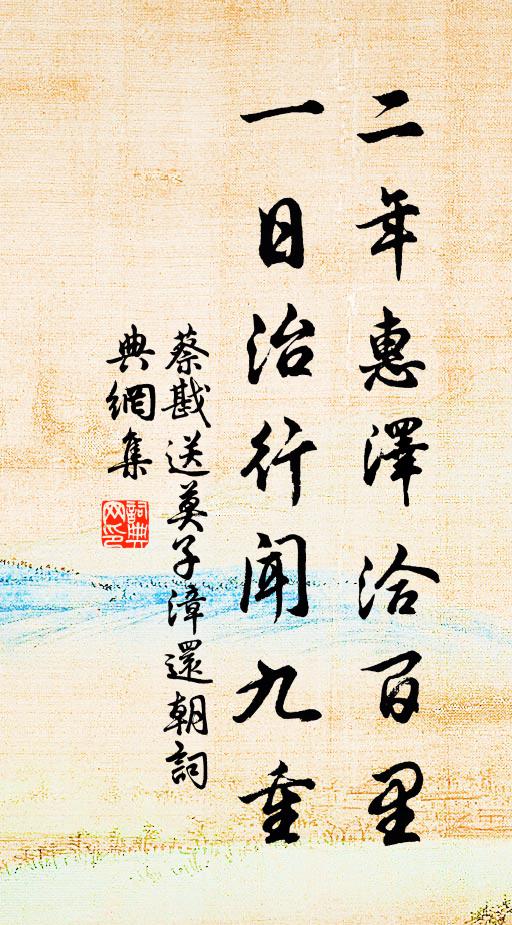 二年惠澤洽百里
一日治行聞九重
蔡戡送莫子漳還朝詞
典網集
詞典网印